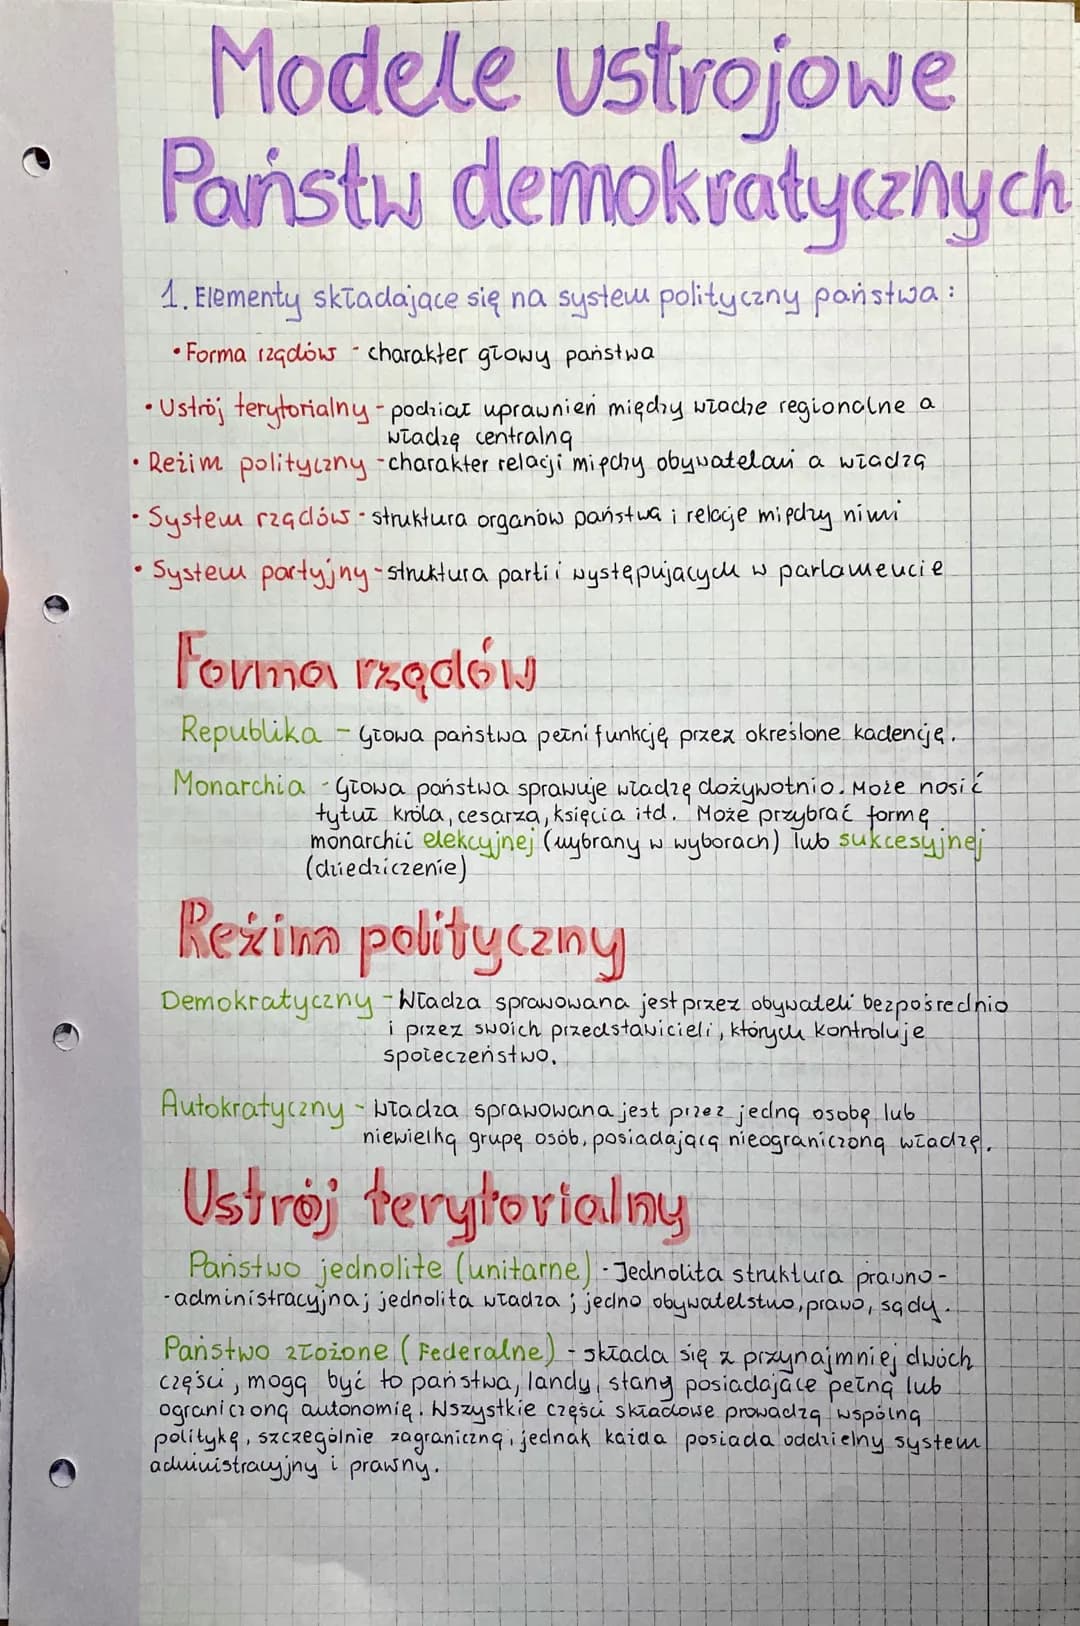 Modele ustrojowe
Państw demokratycznych
1. Elementy składające się na system polityczny państwa:
• Forma rządów - charakter głowy państwa
• Ustrój terytorialny - podział uprawnień między władze regionalne a
władzę centralną
• Reżim polityczny - charakter relacji między obywatelami a władzą
• System rządów - struktura organów państwa i relacje między nimi
• System partyjny - struktura partii występujących w parlamencie
Forma rządów
Republika - Głowa państwa pełni funkcję przez określone kadencję.
Monarchia - Głowa państwa sprawuje władzę dożywotnio. Może nosić
tytuł króla, cesarza, księcia itd. Może przybrać formę
monarchii elekcyjnej (wybrany w wyborach) lub sukcesyjnej
(dziedziczenie)
Reżim polityczny
Demokratyczny - Władza sprawowana jest przez obywateli bezpośrednio
i przez swoich przedstawicieli, których kontroluje
społeczeństwo.
Autokratyczny - Władza sprawowana jest przez jedną osobę lub
niewielką grupę osób, posiadającą nieograniczoną władzę.
Ustrój terytorialny
Państwo jednolite (unitarne) - Jednolita struktura prawno-
-administracyjna; jednolita władza; jedno obywatelstwo, prawo, sądy.
Państwo złożone (Federalne) - składa się z przynajmniej dwóch
części, mogą być to państwa, landy, stany posiadające pełną lub
ograniczoną autonomię. Wszystkie części składowe prowadzą wspólną
politykę, szczególnie zagraniczną, jednak każda posiada oddzielny system
administracyjny i prawny.